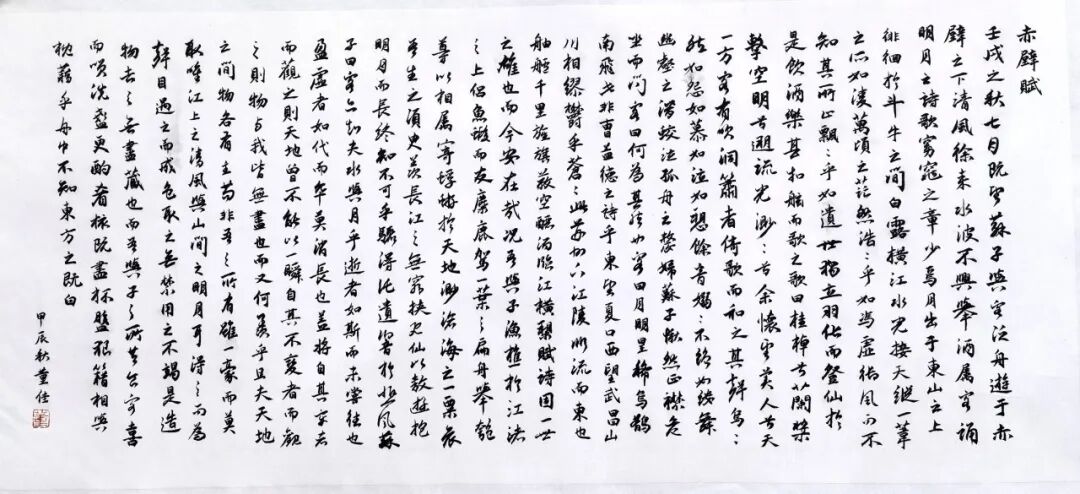 赤壁賦
壬戌之秋七月既望蘇子與客泛舟遊于赤
壁之下清風徐来水波不興舉酒属客誦
明月之詩歌窈窕之章少焉月出于東山之上
徘徊於斗牛之間白露橫江水光接天縱一葦
之所如凌萬頃之茫然浩〻乎如馮虛御風而不
知其所止飄〻乎如遺世獨立羽化而登仙於
是飲酒樂甚扣舷而歌之歌曰桂棹兮蘭槳
擊空明兮遡流光渺〻兮余懷望美人兮天
一方客有吹洞簫者倚歌而和之其聲烏〻
然如怨如慕如泣如愬餘音嫋〻不絕如縷舞
幽壑之潛蛟泣孤舟之嫠婦蘇子愀然正襟危
坐而問客曰何為其然也客曰月明星稀烏鵲
南飛此非曹孟德之詩乎東望夏口西望武昌山
川相繆鬱乎蒼〻此江陵順流而東也
舳艫千里旌旗蔽空釃酒臨江橫槊賦詩固一世
之雄也而今安在哉況吾與子漁樵於江渚
之上侶魚蝦而友麋鹿駕葉之扁舟舉匏
尊以相属寄蜉蝣於天地渺滄海之一粟哀
吾生之須臾羨長江之無窮挾飛仙以遨遊抱
明月而長終知不可乎驟得托遺響於悲風蘇
子曰客亦知夫水與月乎逝者如斯而未嘗往也
盈虛者如代而卒莫消長也蓋將自其變者
而觀之則天地曾不能以一瞬自其不變者而觀
之則物与我皆無盡也而又何羨乎且夫天地
之間物各有主苟非吾之所有雖一毫而莫
取唯江上之清風與山間之明月耳得之而為
聲目遇之而成色取之無禁用之不竭是造
物者之無盡藏也而吾與子之所共食客喜
而笑洗盞更酌肴核既盡杯盤狼籍相與
枕藉乎舟中不知東方之既白
甲辰秋董仕